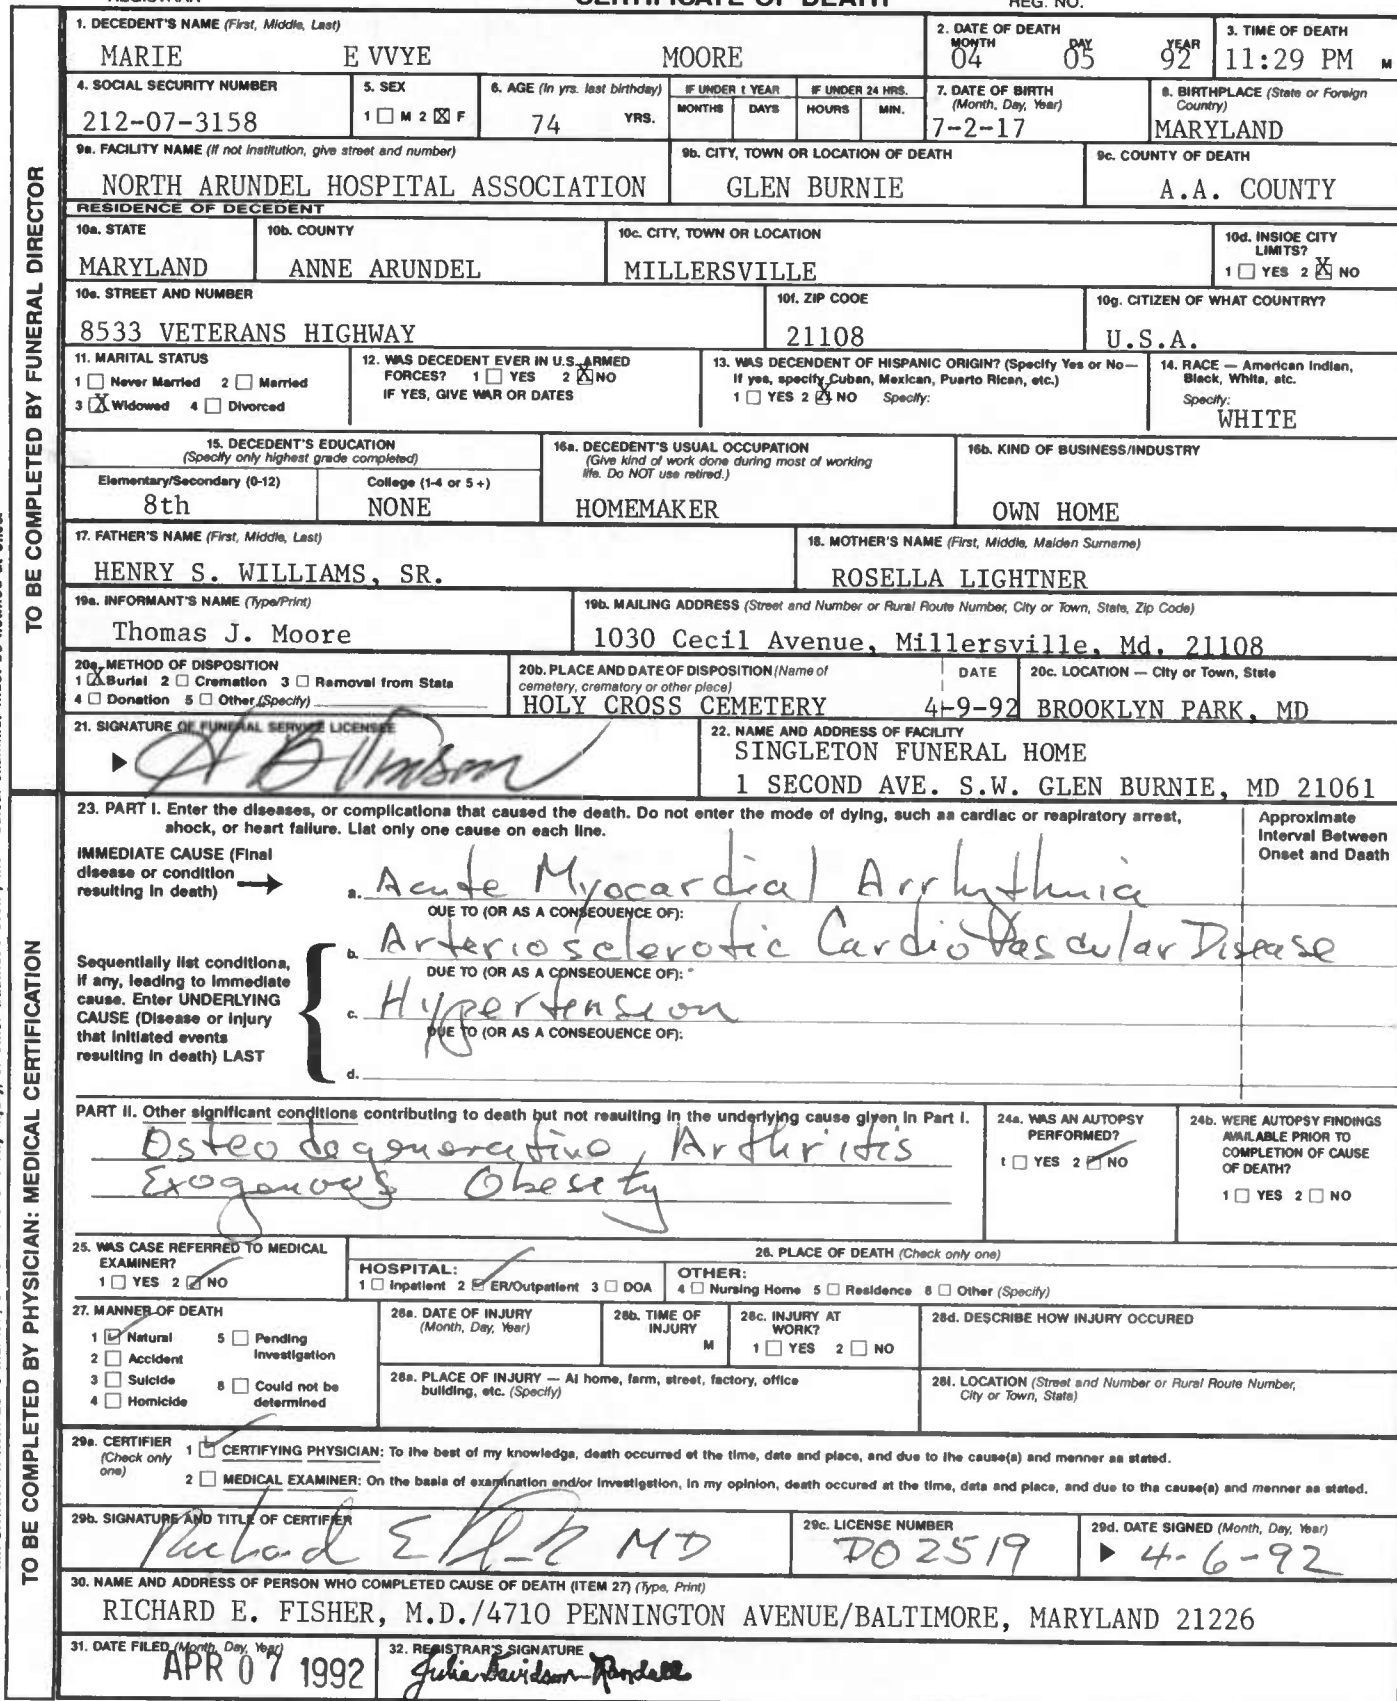 CERTIFICATE OF DEATH
REG. NO.
1. DECEDENT'S NAME (First, Middle, Last)
MARIE E VVYE MOORE
2. DATE OF DEATH
MONTH DAY YEAR
04 05 92
3. TIME OF DEATH
11:29 PM M
4. SOCIAL SECURITY NUMBER
212-07-3158
5. SEX
1 ☐ M 2 ☒ F
6. AGE (In yrs. last birthday)
74 YRS.
IF UNDER 1 YEAR
MONTHS DAYS
IF UNDER 24 HRS.
HOURS MIN.
7. DATE OF BIRTH
(Month, Day, Year)
7-2-17
8. BIRTHPLACE (State or Foreign
Country)
MARYLAND
9a. FACILITY NAME (If not institution, give street and number)
NORTH ARUNDEL HOSPITAL ASSOCIATION
9b. CITY, TOWN OR LOCATION OF DEATH
GLEN BURNIE
9c. COUNTY OF DEATH
A.A. COUNTY
RESIDENCE OF DECEDENT
10a. STATE
MARYLAND
10b. COUNTY
ANNE ARUNDEL
10c. CITY, TOWN OR LOCATION
MILLERSVILLE
10d. INSIDE CITY
LIMITS?
1 ☐ YES 2 ☒ NO
10e. STREET AND NUMBER
8533 VETERANS HIGHWAY
10f. ZIP CODE
21108
10g. CITIZEN OF WHAT COUNTRY?
U.S.A.
11. MARITAL STATUS
1 ☐ Never Married 2 ☐ Married
3 ☒ Widowed 4 ☐ Divorced
12. WAS DECEDENT EVER IN U.S. ARMED
FORCES? 1 ☐ YES 2 ☒ NO
IF YES, GIVE WAR OR DATES
13. WAS DECENDENT OF HISPANIC ORIGIN? (Specify Yes or No—
If yes, specify Cuban, Mexican, Puerto Rican, etc.)
1 ☐ YES 2 ☒ NO Specify:
14. RACE — American Indian,
Black, White, etc.
Specify:
WHITE
15. DECEDENT'S EDUCATION
(Specify only highest grade completed)
Elementary/Secondary (0-12)
8th
College (1-4 or 5+)
NONE
16a. DECEDENT'S USUAL OCCUPATION
(Give kind of work done during most of working
life. Do NOT use retired.)
HOMEMAKER
16b. KIND OF BUSINESS/INDUSTRY
OWN HOME
17. FATHER'S NAME (First, Middle, Last)
HENRY S. WILLIAMS, SR.
18. MOTHER'S NAME (First, Middle, Maiden Surname)
ROSELLA LIGHTNER
19a. INFORMANT'S NAME (Type/Print)
Thomas J. Moore
19b. MAILING ADDRESS (Street and Number or Rural Route Number, City or Town, State, Zip Code)
1030 Cecil Avenue, Millersville, Md. 21108
20a. METHOD OF DISPOSITION
1 ☒ Burial 2 ☐ Cremation 3 ☐ Removal from State
4 ☐ Donation 5 ☐ Other (Specify)
20b. PLACE AND DATE OF DISPOSITION (Name of
cemetery, crematory or other place)
HOLY CROSS CEMETERY
DATE
4-9-92
20c. LOCATION — City or Town, State
BROOKLYN PARK, MD
21. SIGNATURE OF FUNERAL SERVICE LICENSEE
22. NAME AND ADDRESS OF FACILITY
SINGLETON FUNERAL HOME
1 SECOND AVE. S.W. GLEN BURNIE, MD 21061
TO BE COMPLETED BY FUNERAL DIRECTOR
23. PART I. Enter the diseases, or complications that caused the death. Do not enter the mode of dying, such as cardiac or respiratory arrest,
shock, or heart failure. List only one cause on each line.
Approximate
Interval Between
Onset and Death
IMMEDIATE CAUSE (Final
disease or condition
resulting in death) →
a. Acute Myocardial Arrhythmia
DUE TO (OR AS A CONSEQUENCE OF):
Sequentially list conditions,
if any, leading to immediate
cause. Enter UNDERLYING
CAUSE (Disease or injury
that initiated events
resulting in death) LAST
b. Arteriosclerotic Cardio Vascular Disease
DUE TO (OR AS A CONSEQUENCE OF):
c. Hypertension
DUE TO (OR AS A CONSEQUENCE OF):
d.
PART II. Other significant conditions contributing to death but not resulting in the underlying cause given in Part I.
Osteodegenerative Arthritis
Exogenous Obesity
24a. WAS AN AUTOPSY
PERFORMED?
1 ☐ YES 2 ☑ NO
24b. WERE AUTOPSY FINDINGS
AVAILABLE PRIOR TO
COMPLETION OF CAUSE
OF DEATH?
1 ☐ YES 2 ☐ NO
25. WAS CASE REFERRED TO MEDICAL
EXAMINER?
1 ☐ YES 2 ☑ NO
26. PLACE OF DEATH (Check only one)
HOSPITAL:
1 ☐ Inpatient 2 ☑ ER/Outpatient 3 ☐ DOA
OTHER:
4 ☐ Nursing Home 5 ☐ Residence 6 ☐ Other (Specify)
27. MANNER OF DEATH
1 ☑ Natural 5 ☐ Pending
Investigation
2 ☐ Accident
3 ☐ Suicide 6 ☐ Could not be
determined
4 ☐ Homicide
28a. DATE OF INJURY
(Month, Day, Year)
28b. TIME OF
INJURY
M
28c. INJURY AT
WORK?
1 ☐ YES 2 ☐ NO
28d. DESCRIBE HOW INJURY OCCURED
28e. PLACE OF INJURY — At home, farm, street, factory, office
building, etc. (Specify)
28f. LOCATION (Street and Number or Rural Route Number,
City or Town, State)
29a. CERTIFIER
(Check only
one)
1 ☑ CERTIFYING PHYSICIAN: To the best of my knowledge, death occurred at the time, date and place, and due to the cause(s) and manner as stated.
2 ☐ MEDICAL EXAMINER: On the basis of examination and/or investigation, in my opinion, death occured at the time, date and place, and due to the cause(s) and manner as stated.
29b. SIGNATURE AND TITLE OF CERTIFIER
Richard E MD
29c. LICENSE NUMBER
D02519
29d. DATE SIGNED (Month, Day, Year)
4-6-92
30. NAME AND ADDRESS OF PERSON WHO COMPLETED CAUSE OF DEATH (ITEM 27) (Type, Print)
RICHARD E. FISHER, M.D./4710 PENNINGTON AVENUE/BALTIMORE, MARYLAND 21226
31. DATE FILED (Month, Day, Year)
APR 07 1992
32. REGISTRAR'S SIGNATURE
Julia Davidson-Randall
TO BE COMPLETED BY PHYSICIAN: MEDICAL CERTIFICATION